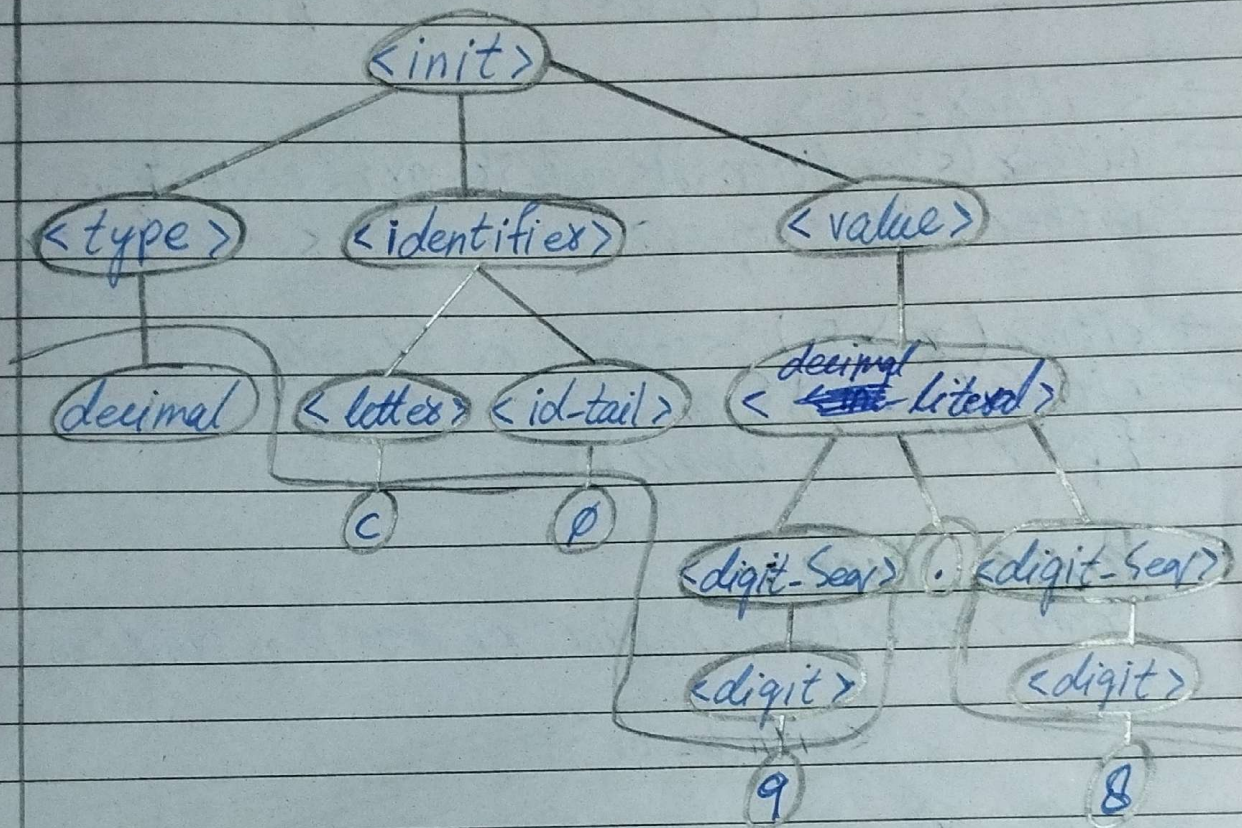 <init>
<type> <identifier> <value>
decimal <letter> <id-tail> <decimal-literal>
c ϕ
<digit-Seq> . <digit-Seq>
<digit> <digit>
9 8